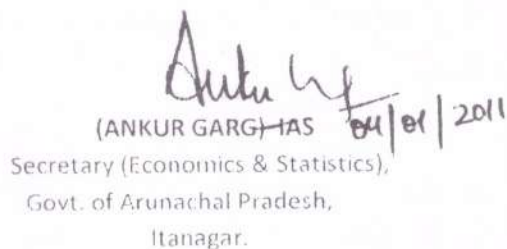 Ankur
(ANKUR GARG) IAS 04/01/2011
Secretary (Economics & Statistics),
Govt. of Arunachal Pradesh,
Itanagar.